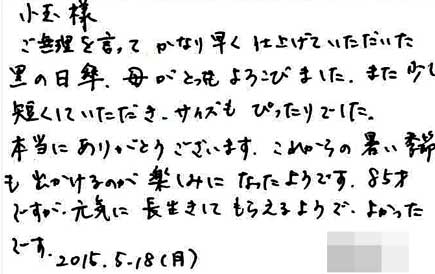 小玉 様
ご無理を言って かなり早く 仕上げていただいた
黒の日傘、母がとてもよろこびました。また 少し
短くしていただき、サイズも ぴったりでした。
本当に ありがとうございます。これからの 暑い 季節
も 出かけるのが 楽しみに なったようです。85才
ですが、元気に 長生きして もらえるようで、よかった
です。2015.5.18(月)